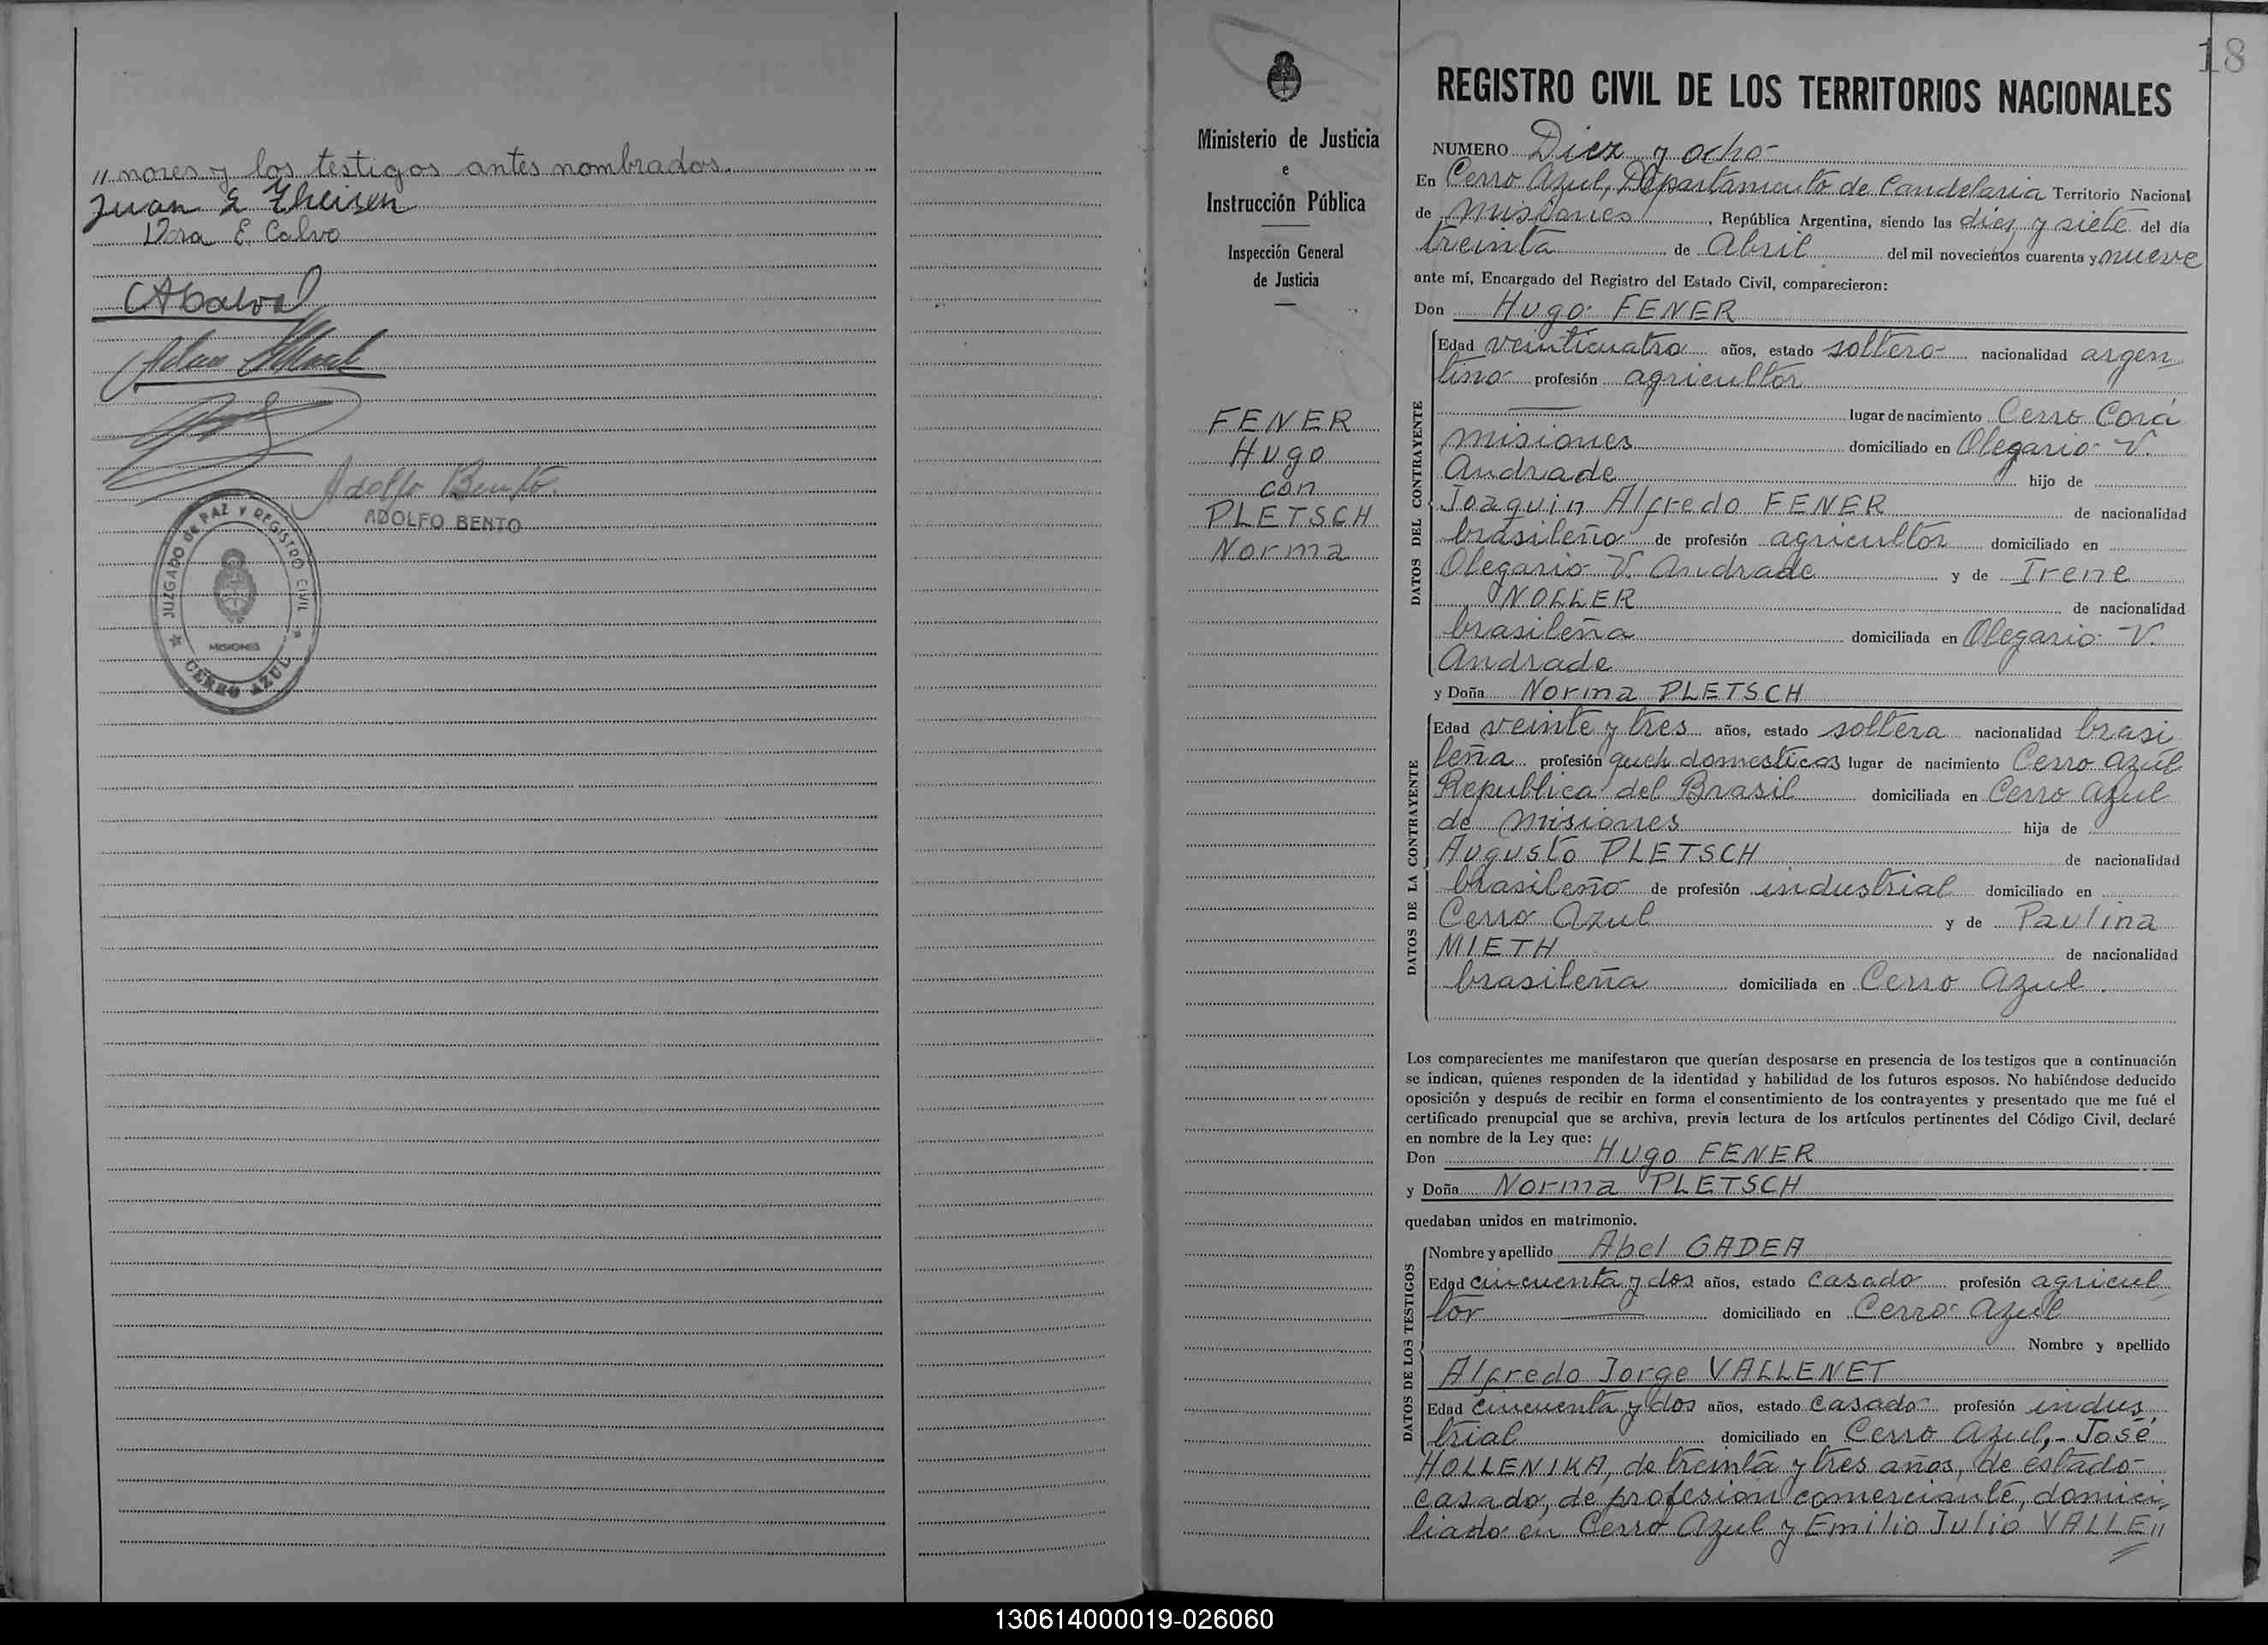 〃nores y los testigos antes nombrados.
Juan E Theisen
Dora E. Calvo
Adolfo Bento.
ADOLFO BENTO
JUZGADO de PAZ Y REGISTRO CIVIL
MISIONES
CERRO AZUL
18
Ministerio de Justicia
e
Instrucción Pública
Inspección General
de Justicia
FENER
Hugo
con
PLETSCH
Norma
REGISTRO CIVIL DE LOS TERRITORIOS NACIONALES
NUMERO Diez y ocho
En Cerro Azul, Departamento de Candelaria Territorio Nacional
de Misiones, República Argentina, siendo las diez y siete del día
treinta de Abril del mil novecientos cuarenta y nueve
ante mí, Encargado del Registro del Estado Civil, comparecieron:
Don Hugo FENER
DATOS DEL CONTRAYENTE
Edad veinticuatro años, estado soltero nacionalidad argen
tino profesión agricultor
lugar de nacimiento Cerro Corá
Misiones domiciliado en Olegario V.
Andrade hijo de
Joaquin Alfredo FENER de nacionalidad
brasileño de profesión agricultor domiciliado en
Olegario V. Andrade y de Irene
NOLLER de nacionalidad
brasileña domiciliada en Olegario V.
Andrade
y Doña Norma PLETSCH
DATOS DE LA CONTRAYENTE
Edad veinte y tres años, estado soltera nacionalidad brasi
leña profesión queh. domesticos lugar de nacimiento Cerro Azul
Republica del Brasil domiciliada en Cerro Azul
de Misiones hija de
Augusto PLETSCH de nacionalidad
brasileño de profesión industrial domiciliado en
Cerro Azul y de Paulina
MIETH de nacionalidad
brasileña domiciliada en Cerro Azul.
Los comparecientes me manifestaron que querían desposarse en presencia de los testigos que a continuación
se indican, quienes responden de la identidad y habilidad de los futuros esposos. No habiéndose deducido
oposición y después de recibir en forma el consentimiento de los contrayentes y presentado que me fué el
certificado prenupcial que se archiva, previa lectura de los artículos pertinentes del Código Civil, declaré
en nombre de la Ley que:
Don Hugo FENER
y Doña Norma PLETSCH
quedaban unidos en matrimonio.
DATOS DE LOS TESTIGOS
Nombre y apellido Abel GADEA
Edad cincuenta y dos años, estado casado profesión agricul
tor domiciliado en Cerro Azul
Nombre y apellido
Alfredo Jorge VALLENET
Edad cincuenta y dos años, estado casado profesión indus
trial domiciliado en Cerro Azul,- José
HOLLENIKA, de treinta y tres años, de estado
casado, de profesion comerciante, domici
liado en Cerro Azul y Emilio Julio VALLE〃
130614000019-026060